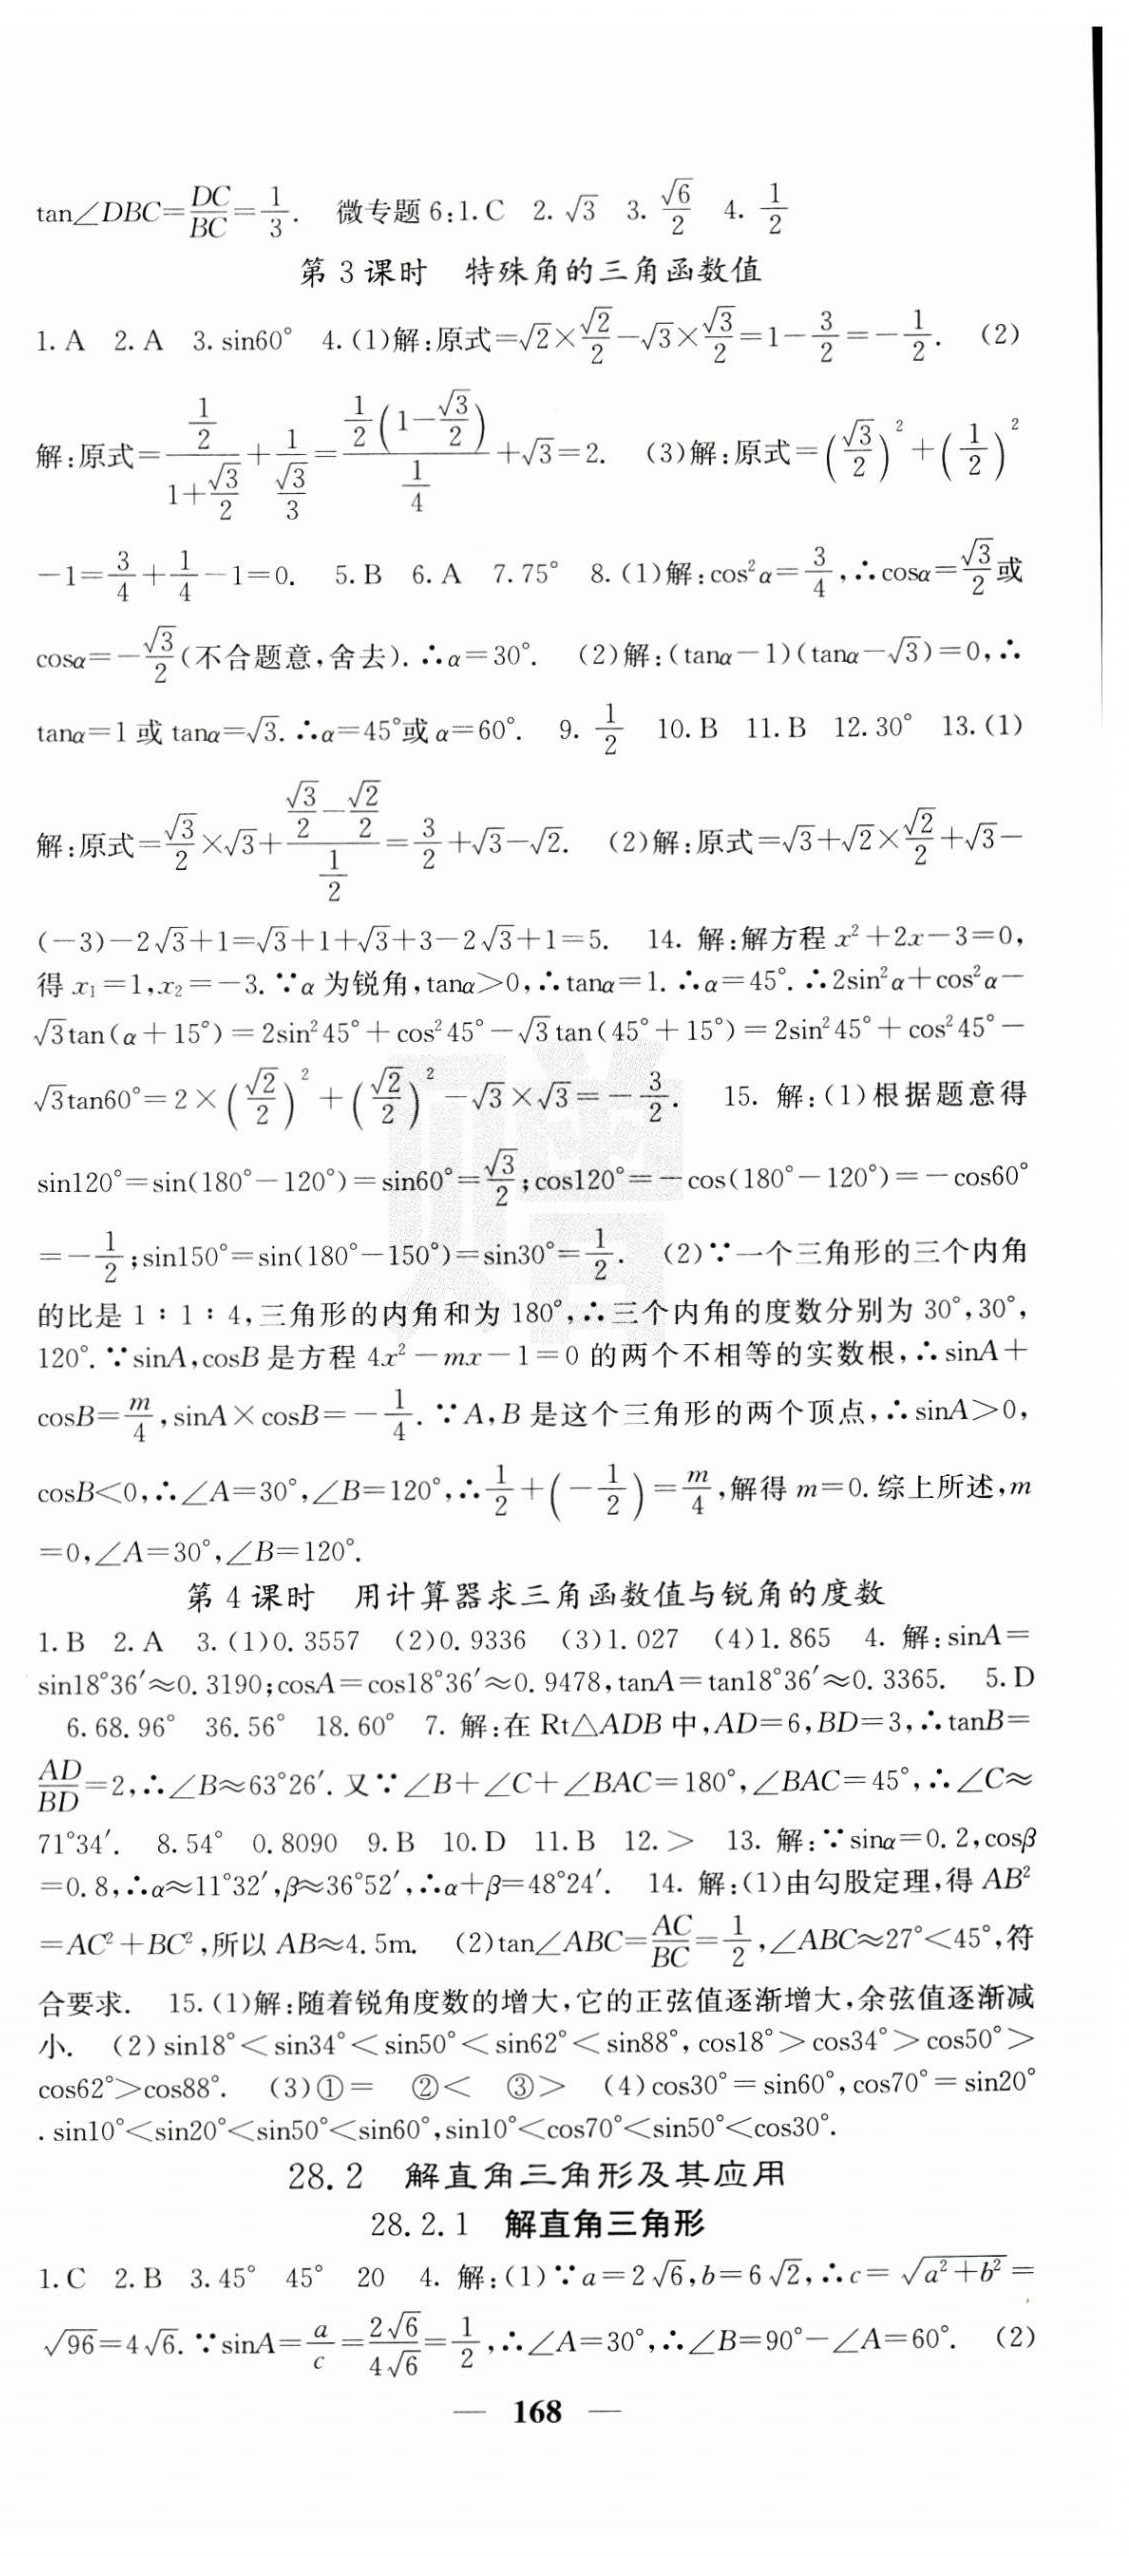 tan∠DBC=DC/BC=1/3. 微专题6:1.C 2.√3 3.√6/2 4.1/2
第3课时 特殊角的三角函数值
1.A 2.A 3.sin60° 4.(1)解:原式=√2×√2/2-√3×√3/2=1-3/2=-1/2. (2)
解:原式=(1/2)/(1+√3/2)+1/(√3/3)=(1/2(1-√3/2))/(1/4)+√3=2. (3)解:原式=(√3/2)²+(1/2)²
-1=3/4+1/4-1=0. 5.B 6.A 7.75° 8.(1)解:cos²α=3/4,∴cosα=√3/2或
cosα=-√3/2(不合题意,舍去).∴α=30°. (2)解:(tanα-1)(tanα-√3)=0,∴
tanα=1或tanα=√3.∴α=45°或α=60°. 9.1/2 10.B 11.B 12.30° 13.(1)
解:原式=√3/2×√3+(√3/2-√2/2)/(1/2)=3/2+√3-√2. (2)解:原式=√3+√2×√2/2+√3-
(-3)-2√3+1=√3+1+√3+3-2√3+1=5. 14. 解:解方程x²+2x-3=0,
得x₁=1,x₂=-3.∵α为锐角,tanα>0,∴tanα=1.∴α=45°.∴2sin²α+cos²α-
√3tan(α+15°)=2sin²45°+cos²45°-√3tan(45°+15°)=2sin²45°+cos²45°-
√3tan60°=2×(√2/2)²+(√2/2)²-√3×√3=-3/2. 15. 解:(1)根据题意得
sin120°=sin(180°-120°)=sin60°=√3/2;cos120°=-cos(180°-120°)=-cos60°
=-1/2;sin150°=sin(180°-150°)=sin30°=1/2. (2)∵一个三角形的三个内角
的比是1∶1∶4,三角形的内角和为180°,∴三个内角的度数分别为30°,30°,
120°.∵sinA,cosB是方程4x²-mx-1=0的两个不相等的实数根,∴sinA+
cosB=m/4,sinA×cosB=-1/4.∵A,B是这个三角形的两个顶点,∴sinA>0,
cosB<0,∴∠A=30°,∠B=120°,∴1/2+(-1/2)=m/4,解得m=0.综上所述,m
=0,∠A=30°,∠B=120°.
第4课时 用计算器求三角函数值与锐角的度数
1.B 2.A 3.(1)0.3557 (2)0.9336 (3)1.027 (4)1.865 4. 解:sinA=
sin18°36′≈0.3190;cosA=cos18°36′≈0.9478,tanA=tan18°36′≈0.3365. 5.D
6.68.96° 36.56° 18.60° 7. 解:在Rt△ADB中,AD=6,BD=3,∴tanB=
AD/BD=2,∴∠B≈63°26′.又∵∠B+∠C+∠BAC=180°,∠BAC=45°,∴∠C≈
71°34′. 8.54° 0.8090 9.B 10.D 11.B 12.> 13. 解:∵sinα=0.2,cosβ
=0.8,∴α≈11°32′,β≈36°52′,∴α+β=48°24′. 14. 解:(1)由勾股定理,得AB²
=AC²+BC²,所以AB≈4.5m. (2)tan∠ABC=AC/BC=1/2,∠ABC≈27°<45°,符
合要求. 15.(1)解:随着锐角度数的增大,它的正弦值逐渐增大,余弦值逐渐减
小. (2)sin18°<sin34°<sin50°<sin62°<sin88°,cos18°>cos34°>cos50°>
cos62°>cos88°. (3)①= ②< ③> (4)cos30°=sin60°,cos70°=sin20°
.sin10°<sin20°<sin50°<sin60°,sin10°<cos70°<sin50°<cos30°.
28.2 解直角三角形及其应用
28.2.1 解直角三角形
1.C 2.B 3.45° 45° 20 4. 解:(1)∵a=2√6,b=6√2,∴c=√(a²+b²)=
√96=4√6.∵sinA=a/c=2√6/4√6=1/2,∴∠A=30°,∴∠B=90°-∠A=60°. (2)
— 168 —